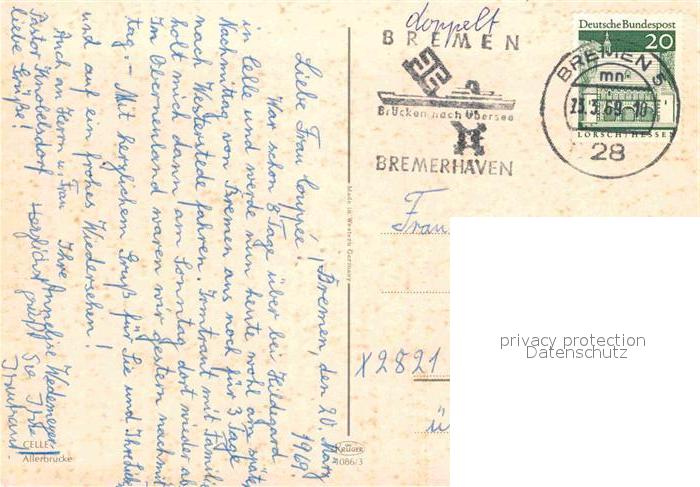 doppelt
BREMEN
Brücken nach Übersee
BREMERHAVEN
Deutsche Bundespost
20
LORSCH/HESSEN
BREMEN 5
mn
23.3.69-16
28
Bremen, den 20. März
1969!
Liebe Frau Couppée!
War schon 8 Tage über bei Hildegard
in Celle und werde nun heute wohl am späten
Nachmittag von Bremen aus noch für 3 Tage
nach Westerstede fahren. Irmtraut mit Familie
holt mich dann am Sonntag dort wieder ab.
Im Oberland waren wir gestern nachmit
tag. - Mit herzlichem Gruß für Sie und Ihre Liebe
und auf ein frohes Wiedersehen!
Auch an Herrn u. Frau Ihre Anneliese Wedemeyer
Pastor Knobelsdorf
liebe Grüße!
Herzlichst grüßt Sie Ihre
Irmtraut.
Made in Western Germany
Frau
X2821
ü
CELLE
Allerbrücke
KRÜGER
1086/3
privacy protection
Datenschutz